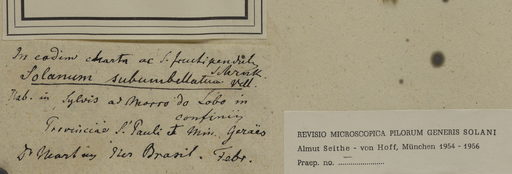 In eadem charta ac S. fructipendulum
Schrank.
Solanum subumbellatum Vell.
Hab. in Sylvis ad Morro do Lobo in
confiniis
Provinciae S. Pauli et Min. Geraës
Dr. Martius Iter Brasil. Febr.
REVISIO MICROSCOPICA PILORUM GENERIS SOLANI
Almut Seithe - von Hoff, München 1954 - 1956
Praep. no. ........................